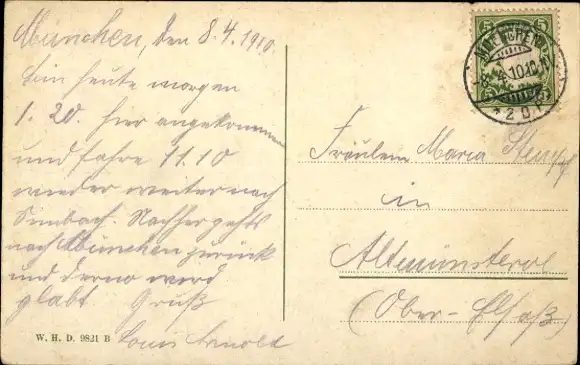 München, den 8.4.1910
bin heute morgen
1.20. hier angekommen
und fahre 11.10
wieder weiter nach
Simbach. Nachher gehts
nach München zurück
und wird
Gruß
Louis Arnold
W. H. D. 9821 B
5 5
MÜNCHEN
8. 4. 10
Fräulein Maria
in
Altmünsterol
(Ober-Elsaß)